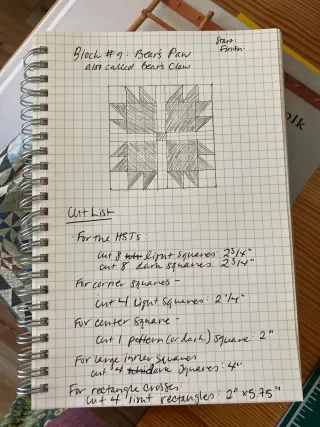 Block #9: Bear's Paw
also called Bear's Claw
Start:
Finish:
Cut List
For the HSTs:
cut 8 light squares: 2 3/4"
cut 8 dark squares: 2 3/4"
For corner squares -
cut 4 light squares: 2 1/4"
For center square -
cut 1 pattern (or dark) square: 2"
For large inner squares
cut 4 dark squares: 4"
For rectangle crosses
cut 4 light rectangles: 2" x 5.75"
olk